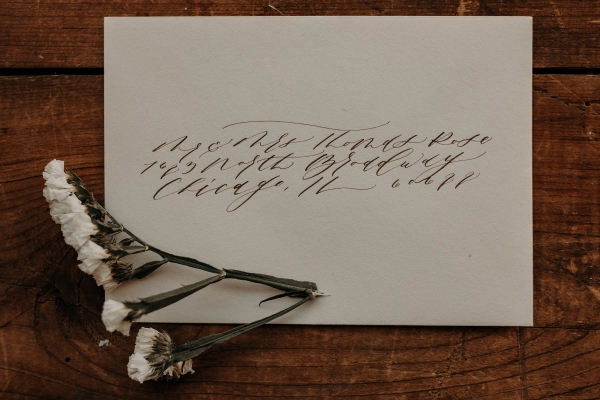 Mr & Mrs Thomas Rose
1493 North Broadway
Chicago, IL